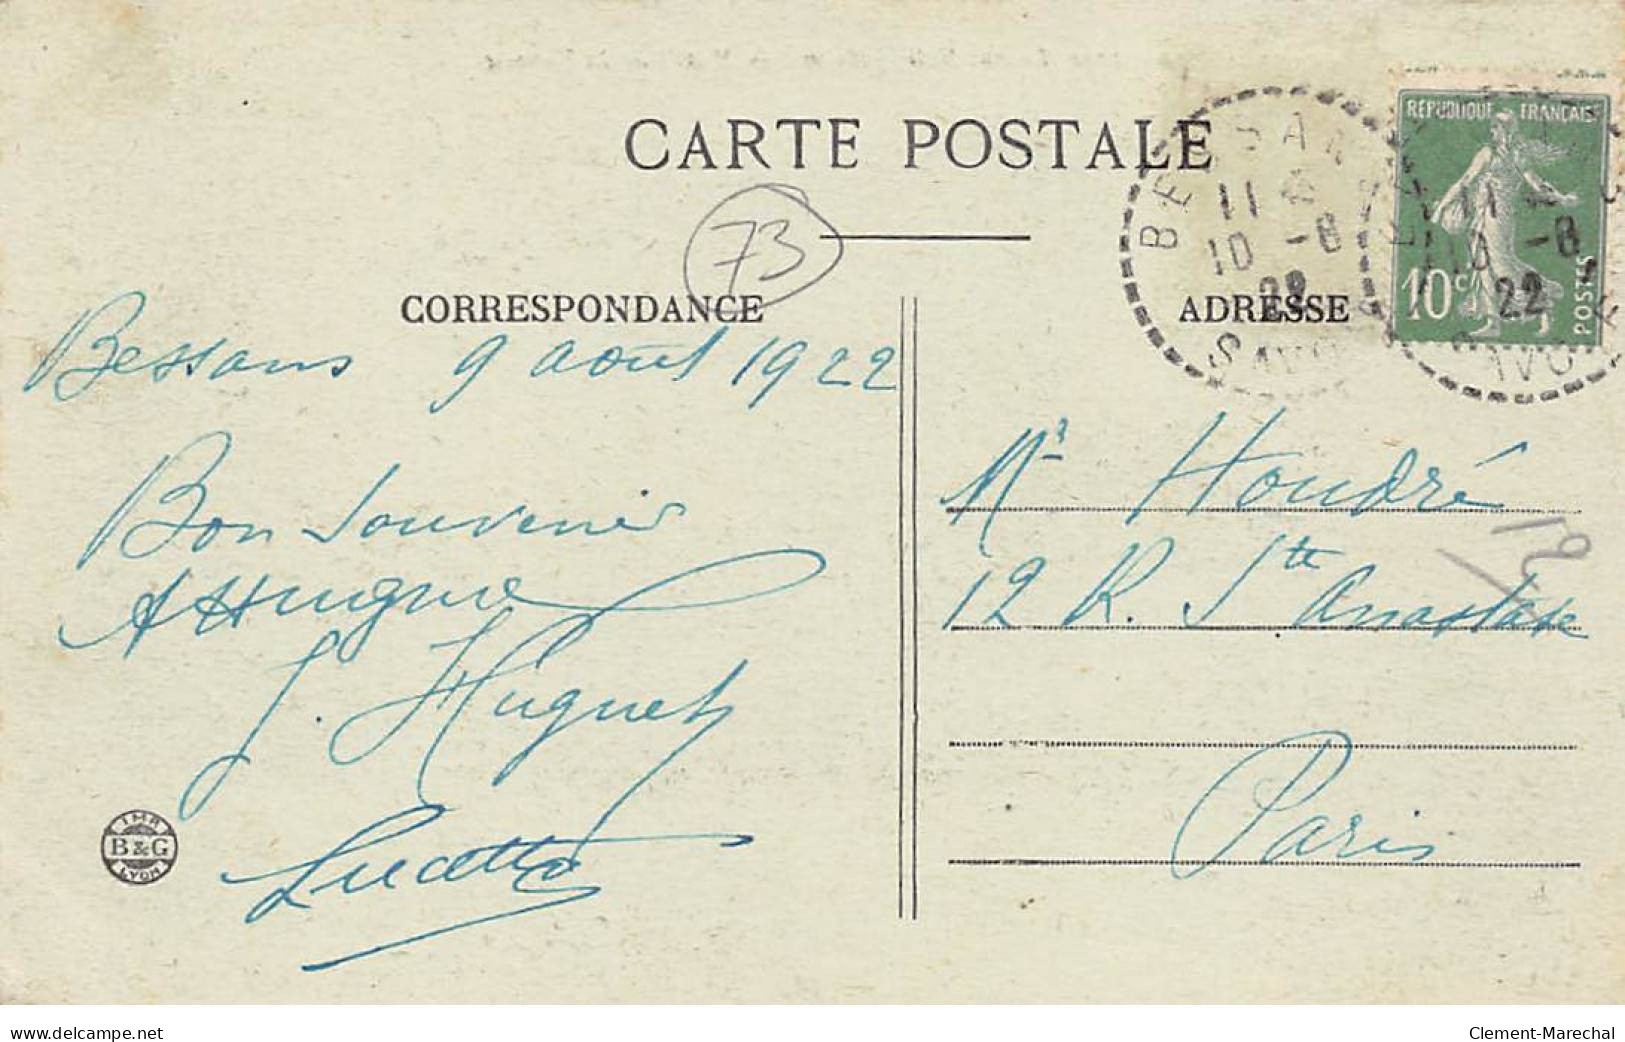 CARTE POSTALE
73
CORRESPONDANCE
ADRESSE
RÉPUBLIQUE FRANÇAISE
10c
POSTES
BESSANS
11
10 -8
22
SAVOIE
11
10 -8
22
Bessans 9 août 1922
Bon Souvenir
A Hugue
J. Huguet
Lucette
Mr Houdré
12 R. Ste Anastase
Paris
IMP
B & G
LYON
www.delcampe.net
Clement-Marechal